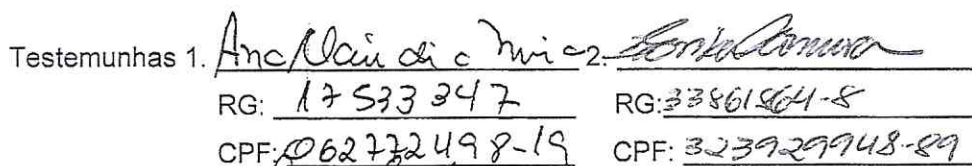 Testemunhas 1. Ana Claudia 2.
RG: 17533347 RG: 33861864-8
CPF: 062772498-19 CPF: 323929948-89